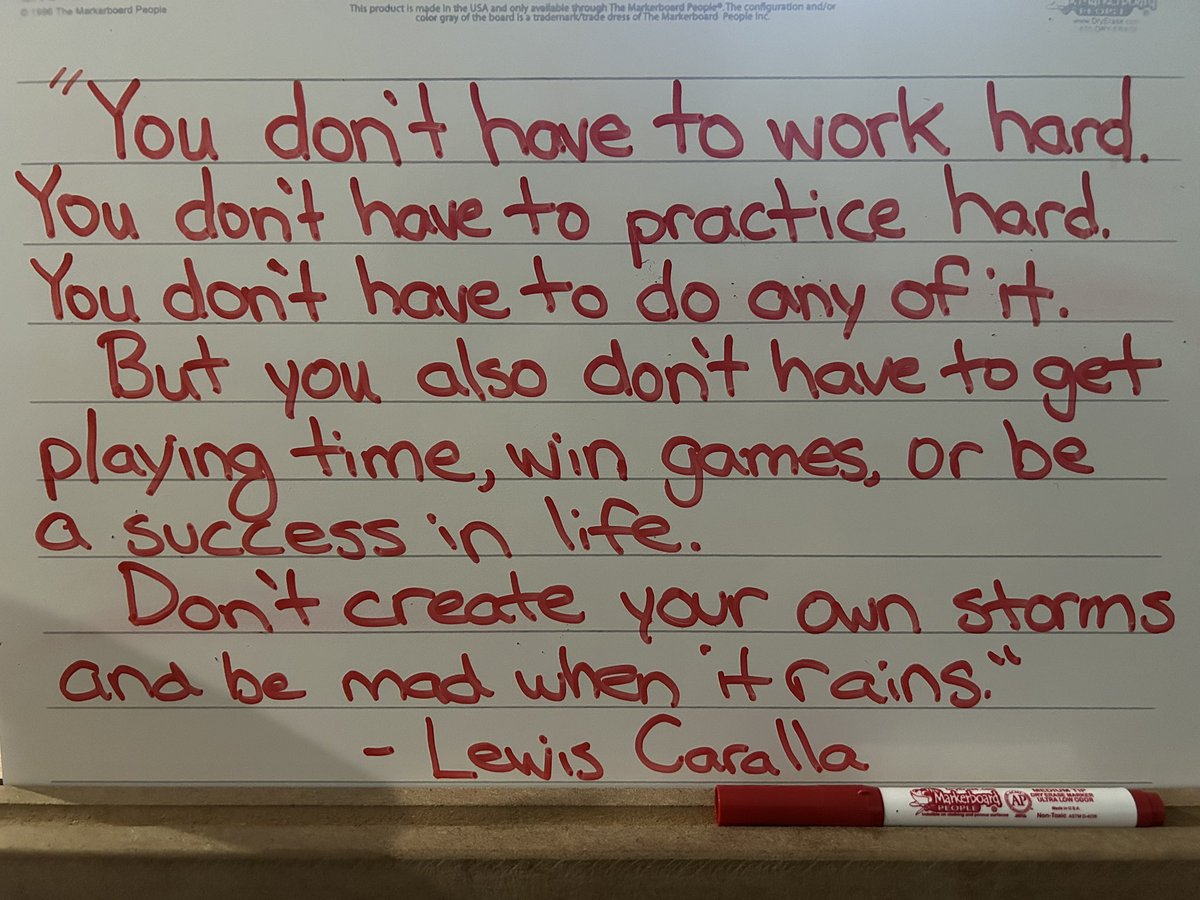 © 1996 The Markerboard People
This product is made in the USA and only available through The Markerboard People®. The configuration and/or
color gray of the board is a trademark/trade dress of The Markerboard People Inc.
PEOPLE
www.DryErase.com
"You don't have to work hard.
You don't have to practice hard.
You don't have to do any of it.
But you also don't have to get
playing time, win games, or be
a success in life.
Don't create your own storms
and be mad when it rains."
- Lewis Caralla
Markerboard
PEOPLE
AP
MEDIUM TIP
DRY ERASE MARKER
ULTRA LOW ODOR
Made in U.S.A.
Non-Toxic ASTM D-4236